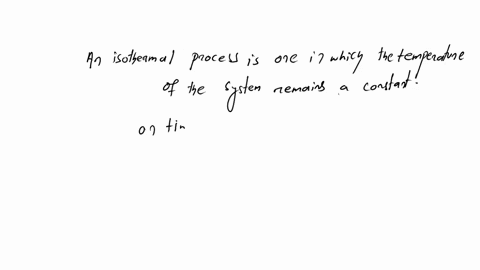 An isothermal process is one in which the temperature
of the system remains a constant.
on tin